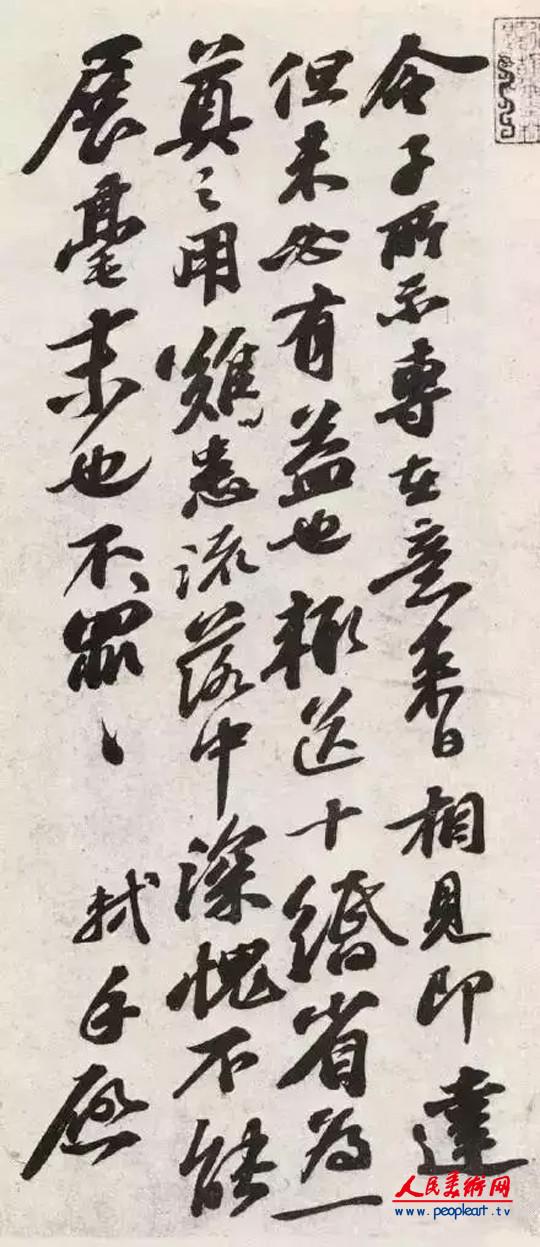 令子所示專在意来日相見即達
但未必有益也輙送十緡省為一
奠之用難患流落中深愧不能
展毫末也不罪〻 軾手啟
人民美術网
www.peopleart.tv